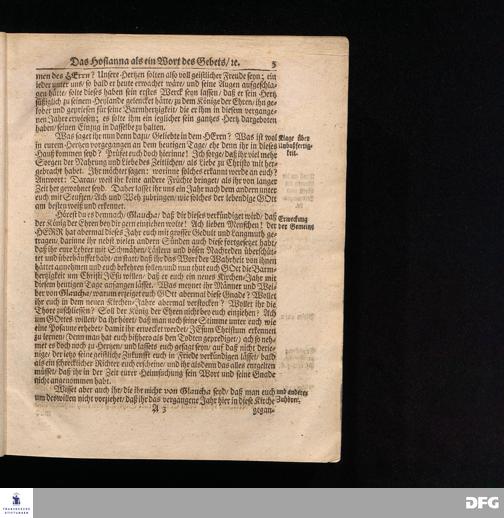 Das Hosianna als ein Wort des Gebets/ ꝛc. 5
men des HErrn? Unsere Hertzen solten also voll geistlicher Freude seyn; ein
ieder unter uns/ so bald er heute erwachet wäre/ und seine Augen aufgeschla-
gen hätte/ solte dieses haben sein erstes Werck seyn lassen/ daß er sein Hertz
süßiglich zu seinem Heylande gelencket hätte/ zu dem Könige der Ehren/ ihn ge-
lobet und gepriesen für seine Barmhertzigkeit/ die er ihm in diesem vergange-
nen Jahre erwiesen; es solte ihm ein ieglicher sein gantzes Hertz dargeboten
haben/ seinen Einzug in dasselbe zu halten.
Was saget ihr nun denn dazu/ Geliebte in dem HErrn? Was ist wol
in eurem Hertzen vorgegangen an dem heutigen Tage/ ehe denn ihr in dieses
Hauß kommen seyd? Prüfet euch doch hierinne! Ich sorge/ daß ihr viel mehr
Sorgen der Nahrung und Liebe des Zeitlichen/ als Liebe zu Christo mit her-
gebracht habet. Ihr möchtet sagen: worinne solches erkannt werde an euch?
Antwort: Daran/ weil ihr keine andere Früchte bringet/ als ihr von langer
Zeit her gewohnet seyd. Daher lasset ihr uns ein Jahr nach dem andern unter
euch mit Seufzen/ Ach und Weh zubringen/ wie solches der lebendige GOtt
am besten weiß und erkennet.
Klage über
unbußfertig-
keit.
Hörest du es demnach/ Glaucha/ daß dir dieses verkündiget wird/ daß
der König der Ehren bey dir gern einziehen wolte! Ach lieben Menschen! der
HERR hat abermal dieses Jahr euch mit grosser Gedult und Langmuth ge-
tragen/ darinne ihr nebst vielen andern Sünden auch diese fortgesetzet habt/
daß ihr eure Lehrer mit Schmähen/ Lästern und bösen Nachreden überschüt-
tet und überhäuffet habt/ an statt/ daß ihr das Wort der Wahrheit von ihnen
hättet annehmen und euch bekehren sollen/ und nun thut euch GOtt die Barm-
hertzigkeit um Christi JEsu willen/ daß er euch ein neues Kirchen-Jahr mit
diesem heutigen Tage anfangen lässet. Was meynet ihr Männer und Wei-
ber von Glaucha/ warum erzeiget euch GOtt abermal diese Gnade? Wollet
ihr euch in dem neuen Kirchen-Jahre abermal verstocken? Wollet ihr die
Thore zuschliessen? Soll der König der Ehren nicht bey euch einziehen? Ach
um GOttes willen/ da ihr höret/ daß man noch seine Stimme unter euch wie
eine Posaune erhebet/ damit ihr erwecket werdet/ JEsum Christum erkennen
zu lernen/ (denn man hat euch bißhero als den Todten geprediget) ach so neh-
met es doch noch zu Hertzen/ und lassets euch gesagt seyn/ auf daß nicht derje-
nige/ der ietzo seine geistliche Zukunfft euch in Friede verkündigen lässet/ bald
als ein schrecklicher Richter euch erscheine/ und ihr alsdenn das alles entgelten
müsset/ daß ihr in der Zeit eurer Heimsuchung sein Wort und seine Gnade
nicht angenommen habt.
Erweckung
der Gemeine
Wisset aber auch ihr/ die ihr nicht von Glaucha seyd/ daß man euch
um deswillen nicht vorziehet/ daß ihr das vergangene Jahr hier in diese Kirche
und anderer
Zuhörer.
A 3 gegan-
FRANCKESCHE
STIFTUNGEN
DFG